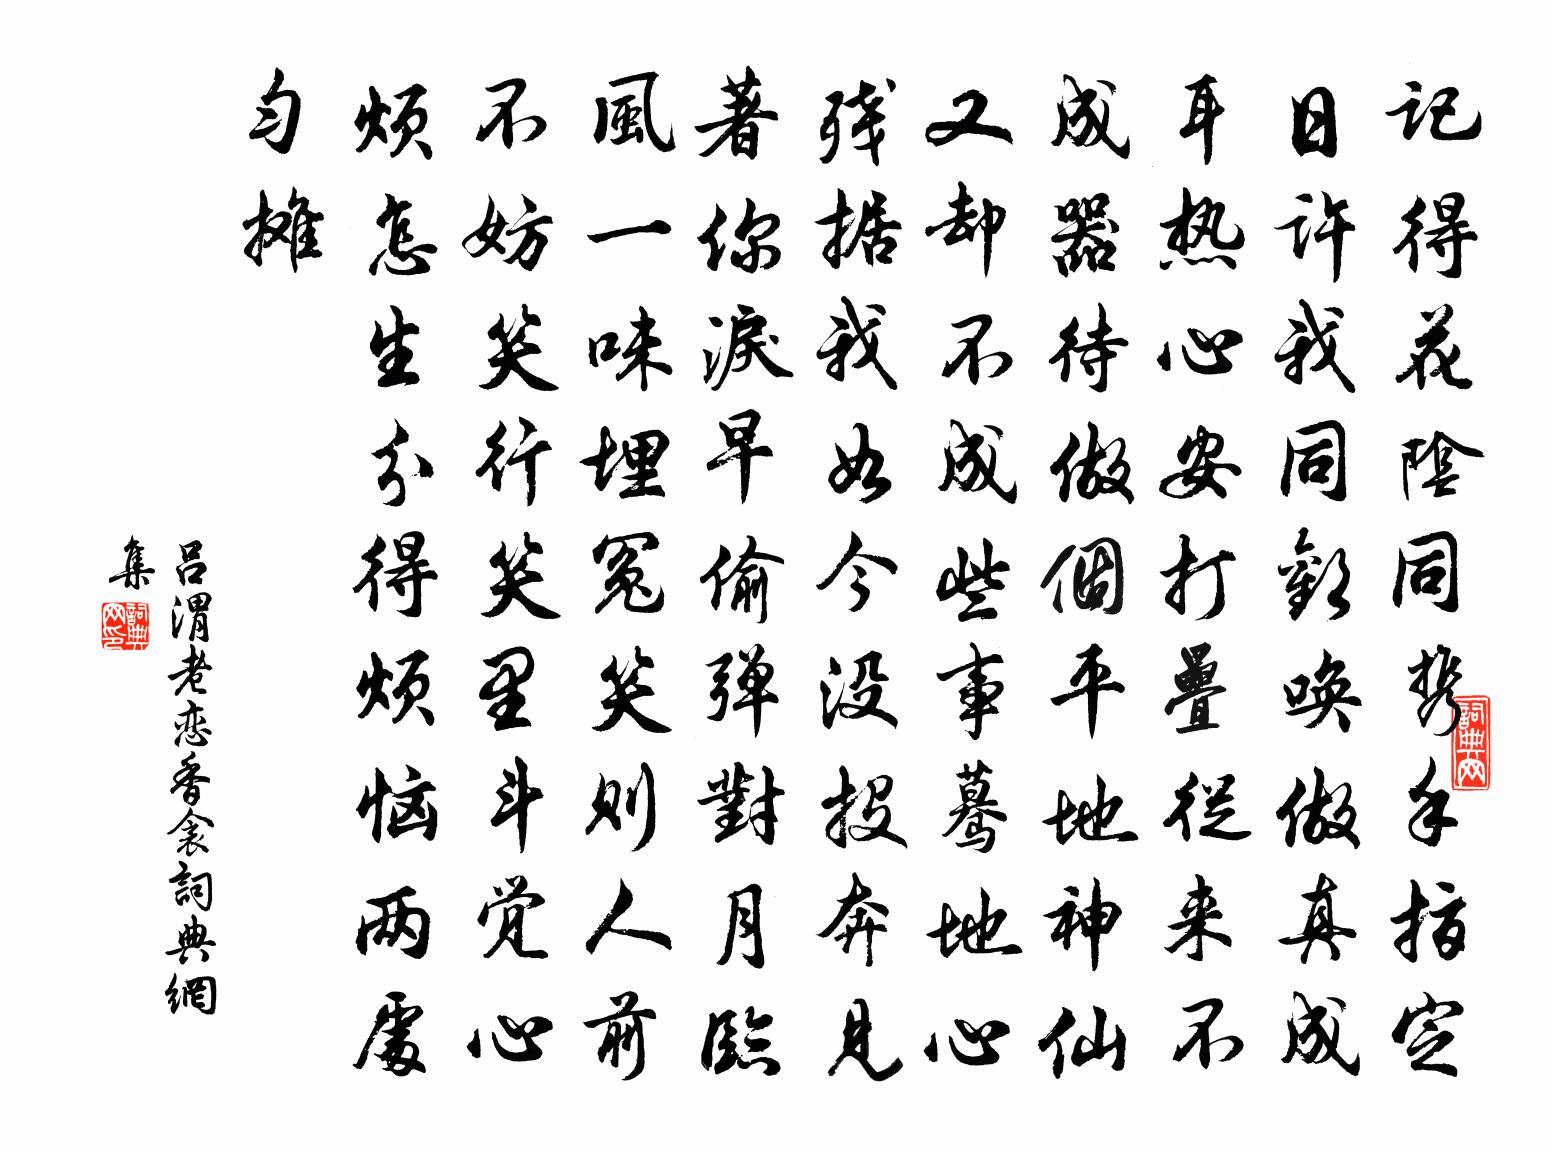 记得花陰同携手指定
日许我同歡唤做真成
耳热心安打疊從来不
成器待做個平地神仙
又却不成些事驀地心
残据我如今没投奔見
著你淚早偷弹對月臨
風一味埋冤笑则人前
不妨笑行笑里斗觉心
烦怎生分得烦恼两處
匀摊
吕渭老恋香衾詞典網
集
詞典网
詞典网印